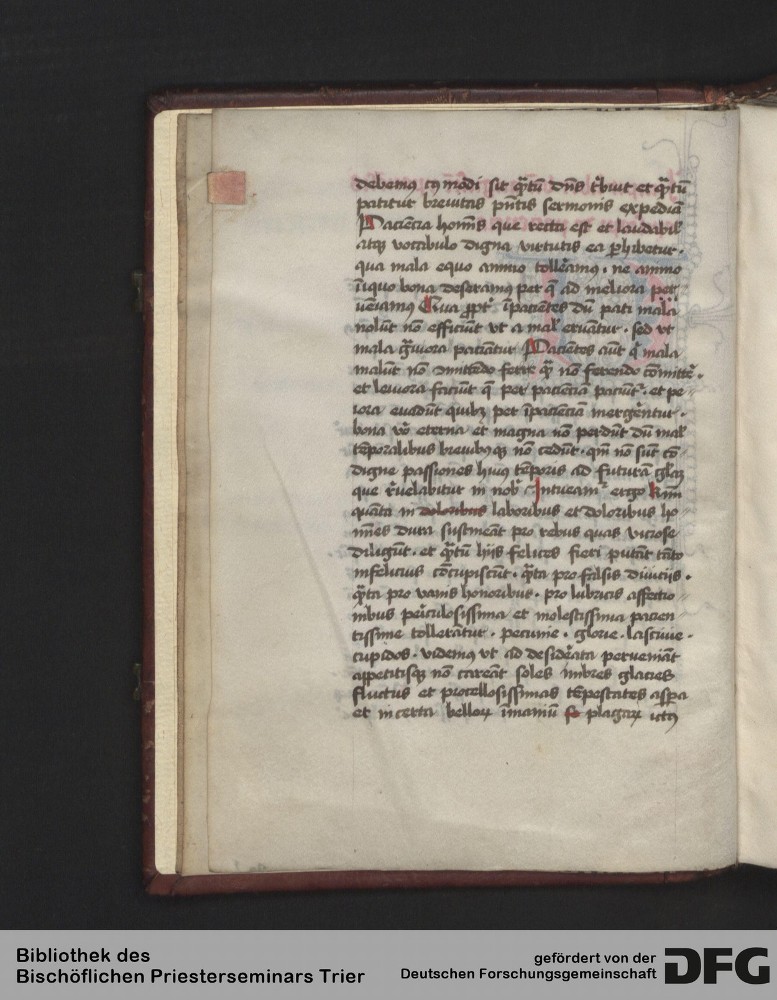 debemus cuiusmodi sit q̄ntū dn̄s t̓buit et q̄ntū
patitur breuitas pn̄tis sermonis expediā
Paciencia homīs que recta est et laudabil̓
atq̨ vocabulo digna virtutis ea ꝑhibetur ·
qua mala equo animo toll̓amus · ne animo
īiquo bona deseramus per q̄ ad meliora per
ueniamus Qua ꝓpt̓ īpacientes dū pati mala
nolūt nō efficiūt vt a mal̓ eruātur · sed vt
mala gͣuiora paciātur Pacientes aūt q̓ mala
malūt nō cōmittēdo ferre qͣ nō ferendo cōmitte̓ ·
et leuiora faciūt q̄ per pacienciā paciūt̓ · et pe-
iora euadūt quibꝫ per īpacienciā mergerētur ·
bona vͦ eterna et magna nō perdūt dū mal̓
tēporalibus breuibusq̨ nō cedūt · qm̄ nō sūt cō
digne passiones huius tēporis ad futurā gl̄iaꝫ
que r̓uelabitur in nob̓ Intueam̓ ergo km̄i
quāta in doloribus laboribus et doloribus ho
mīes dura sustineāt pro rebus quas viciose
diligūt · et q̄ntū hiis felices fieri putāt tāto
infelicius cōcupiscūt · q̄nta pro falsis diuiciis ·
q̄nta pro vanis honoribus · pro lubricis affectio-
nibus pericu̓losissima et molestissima pacien-
tissime tollerātur · pecunie · glorie · lasciuie ·
cupidos · videmus vt ad desid̓ata perueniāt
appetitisq̨ nō careāt soles imbres glacies
fluctus et procellosissimas tēpestates asꝑa
et incerta belloꝝ īmaniū fe plagaꝝ ictꝰ
Bibliothek des
Bischöflichen Priesterseminars Trier
gefördert von der
Deutschen Forschungsgemeinschaft
DFG